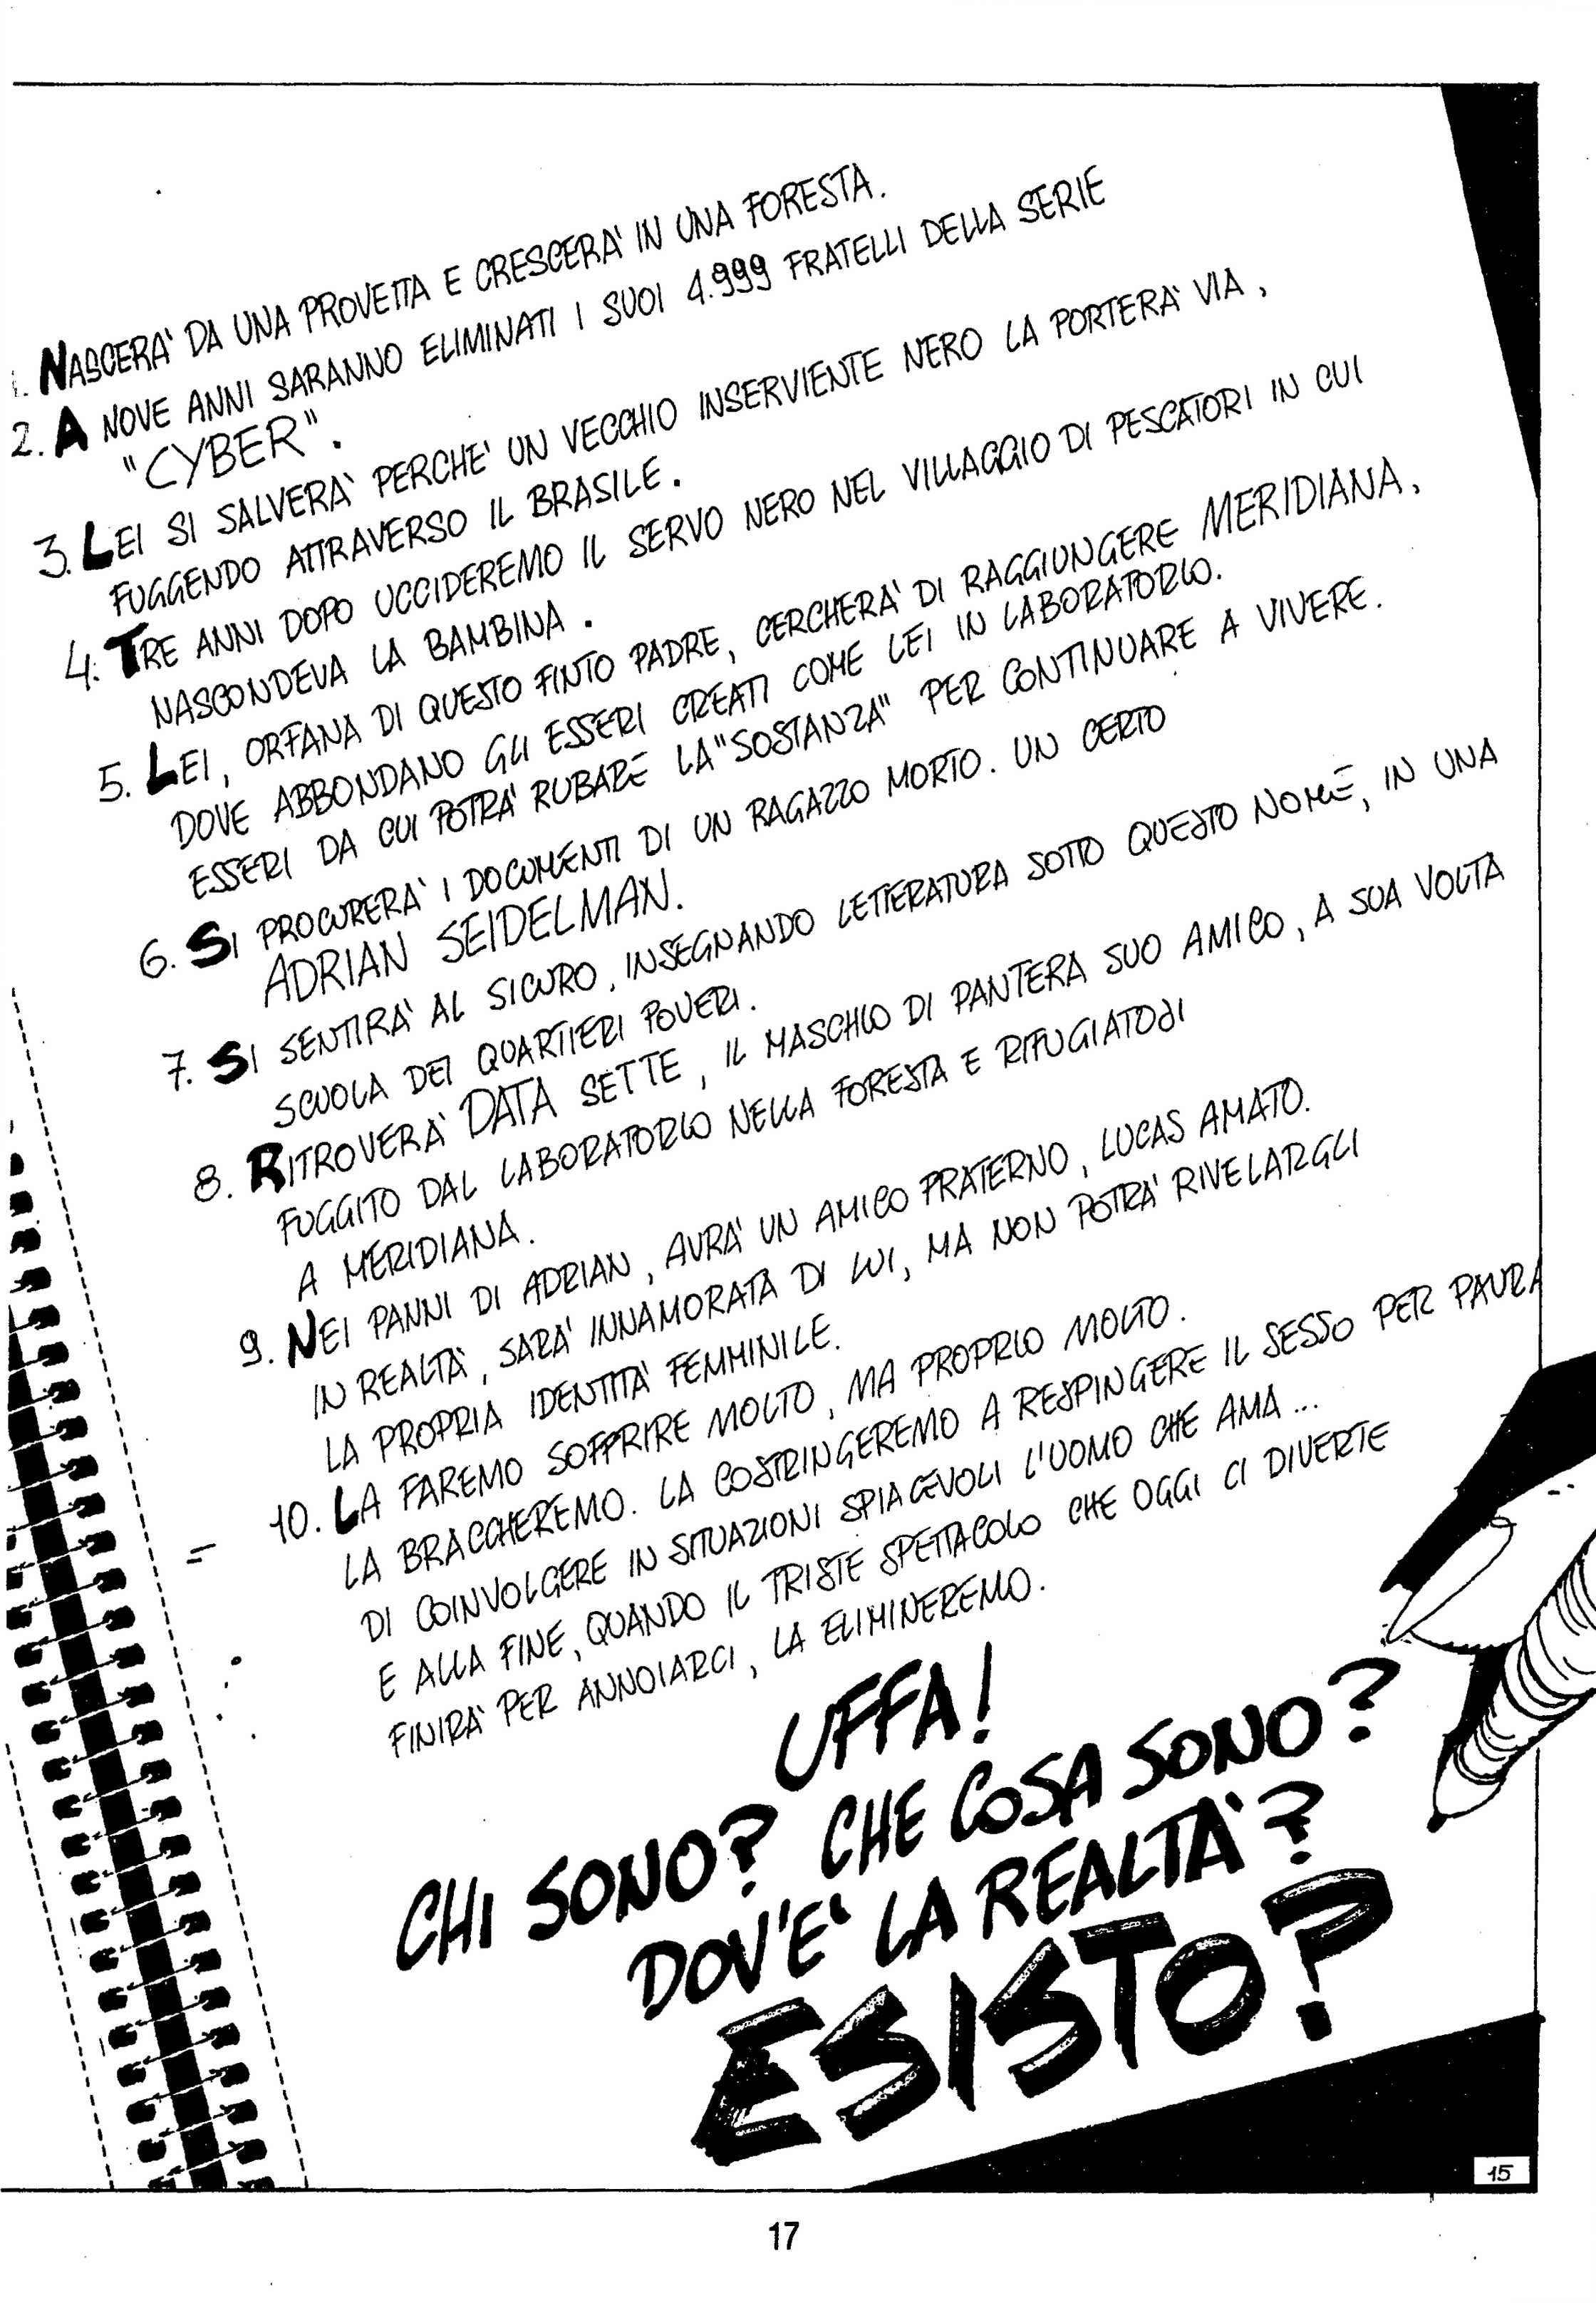 1. NASCERA' DA UNA PROVETTA E CRESCERA' IN UNA FORESTA.
2. A NOVE ANNI SARANNO ELIMINATI I SUOI 4.999 FRATELLI DELLA SERIE
"CYBER".
3. LEI SI SALVERA' PERCHE' UN VECCHIO INSERVIENTE NERO LA PORTERA' VIA,
FUGGENDO ATTRAVERSO IL BRASILE.
4. TRE ANNI DOPO UCCIDEREMO IL SERVO NERO NEL VILLAGGIO DI PESCATORI IN CUI
NASCONDEVA LA BAMBINA.
5. LEI, ORFANA DI QUESTO FINTO PADRE, CERCHERA' DI RAGGIUNGERE MERIDIANA,
DOVE ABBONDANO GLI ESSERI CREATI COME LEI IN LABORATORIO.
ESSERI DA CUI POTRA' RUBARE LA "SOSTANZA" PER CONTINUARE A VIVERE.
6. SI PROCURERA' I DOCUMENTI DI UN RAGAZZO MORTO. UN CERTO
ADRIAN SEIDELMAN.
7. SI SENTIRA' AL SICURO, INSEGNANDO LETTERATURA SOTTO QUESTO NOME, IN UNA
SCUOLA DEI QUARTIERI POVERI.
8. RITROVERA' DATA SETTE, IL MASCHIO DI PANTERA SUO AMICO, A SUA VOLTA
FUGGITO DAL LABORATORIO NELLA FORESTA E RIFUGIATOSI
A MERIDIANA.
9. NEI PANNI DI ADRIAN, AVRA' UN AMICO FRATERNO, LUCAS AMATO.
IN REALTA', SARA' INNAMORATA DI LUI, MA NON POTRA' RIVELARGLI
LA PROPRIA IDENTITA' FEMMINILE.
10. LA FAREMO SOFFRIRE MOLTO, MA PROPRIO MOLTO.
LA BRACCHEREMO. LA COSTRINGEREMO A RESPINGERE IL SESSO PER PAURA
DI COINVOLGERE IN SITUAZIONI SPIACEVOLI L'UOMO CHE AMA...
E ALLA FINE, QUANDO IL TRISTE SPETTACOLO CHE OGGI CI DIVERTE
FINIRA' PER ANNOIARCI, LA ELIMINEREMO.
UFFA!
CHI SONO? CHE COSA SONO?
DOV'E' LA REALTA'?
ESISTO?
15
17